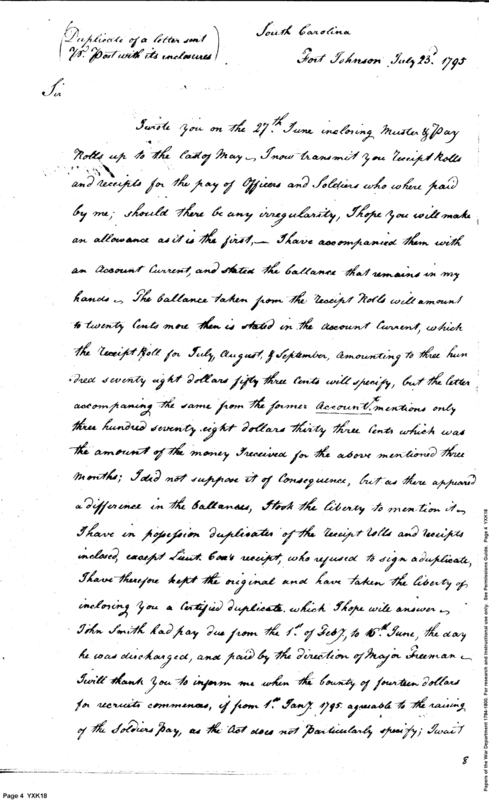 (Duplicate of a letter sent
pr. Post with its inclosures)
South Carolina
Fort Johnson July 23d. 1795
Sir
I wrote you on the 27th. June inclosing Muster & Pay
Rolls up to the last of May - I now transmit you receipt Rolls
and receipts for the pay of Officers and Soldiers who where paid
by me; should there be any irregularity, I hope you will make
an allowance as it is the first, - I have accompanied them with
an Account Current, and stated the ballance that remains in my
hands - The ballance taken from the receipt Rolls will amount
to twenty Cents more then is stated in the account Current, which
the receipt Roll for July, August, & September, amounting to three hun
dred seventy eight dollars fifty three Cents will specify, but the letter
accompaning the same from the former Account.t mentions only
three hundred seventy eight dollars thirty three Cents which was
the amount of the money I received for the above mentioned three
Months; I did not suppose it of Consequence, but as there appeared
a difference in the ballances, I took the liberty to mention it -
I have in possession duplicates of the receipt rolls and receipts
inclosed, except Lieut. Cox's receipt, who refused to sign a duplicate,
I have therefore kept the original and have taken the liberty of
inclosing you a Certified duplicate which I hope will answer -
John Smith had pay due from the 1st. of Feby, to 16th June, the day
he was discharged, and paid by the direction of Major Freeman -
I will thank you to inform me when the bounty of fourteen dollars
for recruits commences, if from 1st Jany. 1795 agreeable to the raising
of the Soldiers Pay, as the Act does not Particularly specify; I wait
8
Page 4 YXK18
Papers of the War Department 1784-1800. For research and instructional use only. See Permissions Guide. Page 4 YXK18